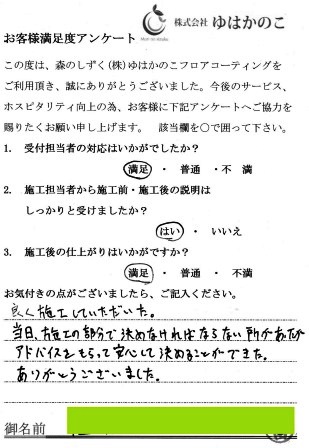 株式会社 ゆはかのこ
お客様満足度アンケート
この度は、森のしずく(株)ゆはかのこフロアコーティングを
ご利用頂き、誠にありがとうございました。今後のサービス、
ホスピタリティ向上の為、お客様に下記アンケートへご協力を
賜りたくお願い申し上げます。 該当欄を○で囲って下さい。
1. 受付担当者の対応はいかがでしたか?
満足 ・ 普通 ・不 満
2. 施工担当者から施工前・施工後の説明は
しっかりと受けましたか?
はい ・ いいえ
3. 施工後の仕上がりはいかがですか?
満足 ・ 普通 ・ 不満
お気付きの点がございましたら、ご記入ください。
良く施工していただいた。
当日、施工の部分で決めなければならない所があったが
アドバイスをもらって安心して決めることができた。
ありがとうございました。
御名前